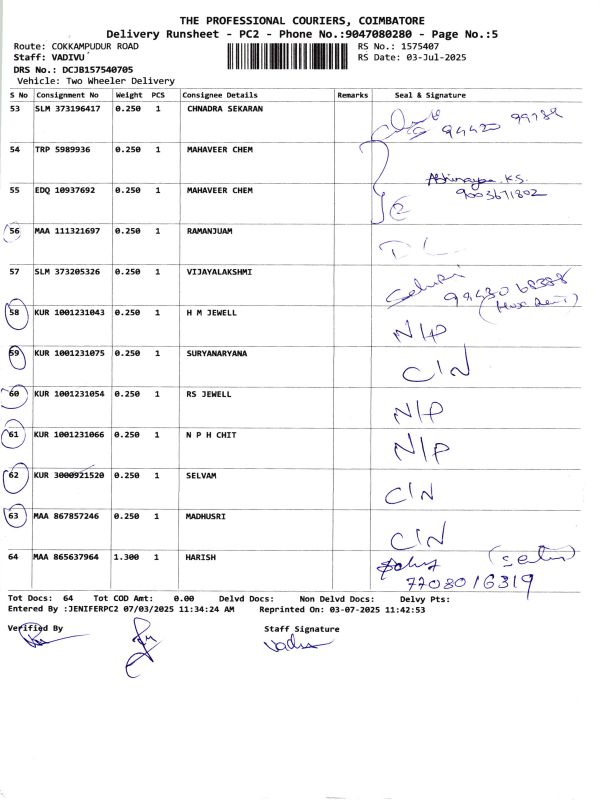 THE PROFESSIONAL COURIERS, COIMBATORE
Delivery Runsheet - PC2 - Phone No.:9047080280 - Page No.:5
Route: COKKAMPUDUR ROAD
RS No.: 1575407
Staff: VADIVU
RS Date: 03-Jul-2025
DRS No.: DCJB157540705
Vehicle: Two Wheeler Delivery
S No Consignment No Weight PCS Consignee Details Remarks Seal & Signature
53 SLM 373196417 0.250 1 CHNADRA SEKARAN
94420 99784
54 TRP 5989936 0.250 1 MAHAVEER CHEM
Abhinayaa K.S.
55 EDQ 10937692 0.250 1 MAHAVEER CHEM 9003671802
56 MAA 111321697 0.250 1 RAMANJUAM D L
57 SLM 373205326 0.250 1 VIJAYALAKSHMI
99430 68388
58 KUR 1001231043 0.250 1 H M JEWELL N/P
59 KUR 1001231075 0.250 1 SURYANARYANA C/N
60 KUR 1001231054 0.250 1 RS JEWELL N/P
61 KUR 1001231066 0.250 1 N P H CHIT N/P
62 KUR 3000921520 0.250 1 SELVAM C/N
63 MAA 867857246 0.250 1 MADHUSRI C/N
64 MAA 865637964 1.300 1 HARISH
7708016319
Tot Docs: 64 Tot COD Amt: 0.00 Delvd Docs: Non Delvd Docs: Delvy Pts:
Entered By :JENIFERPC2 07/03/2025 11:34:24 AM Reprinted On: 03-07-2025 11:42:53
Verified By Staff Signature